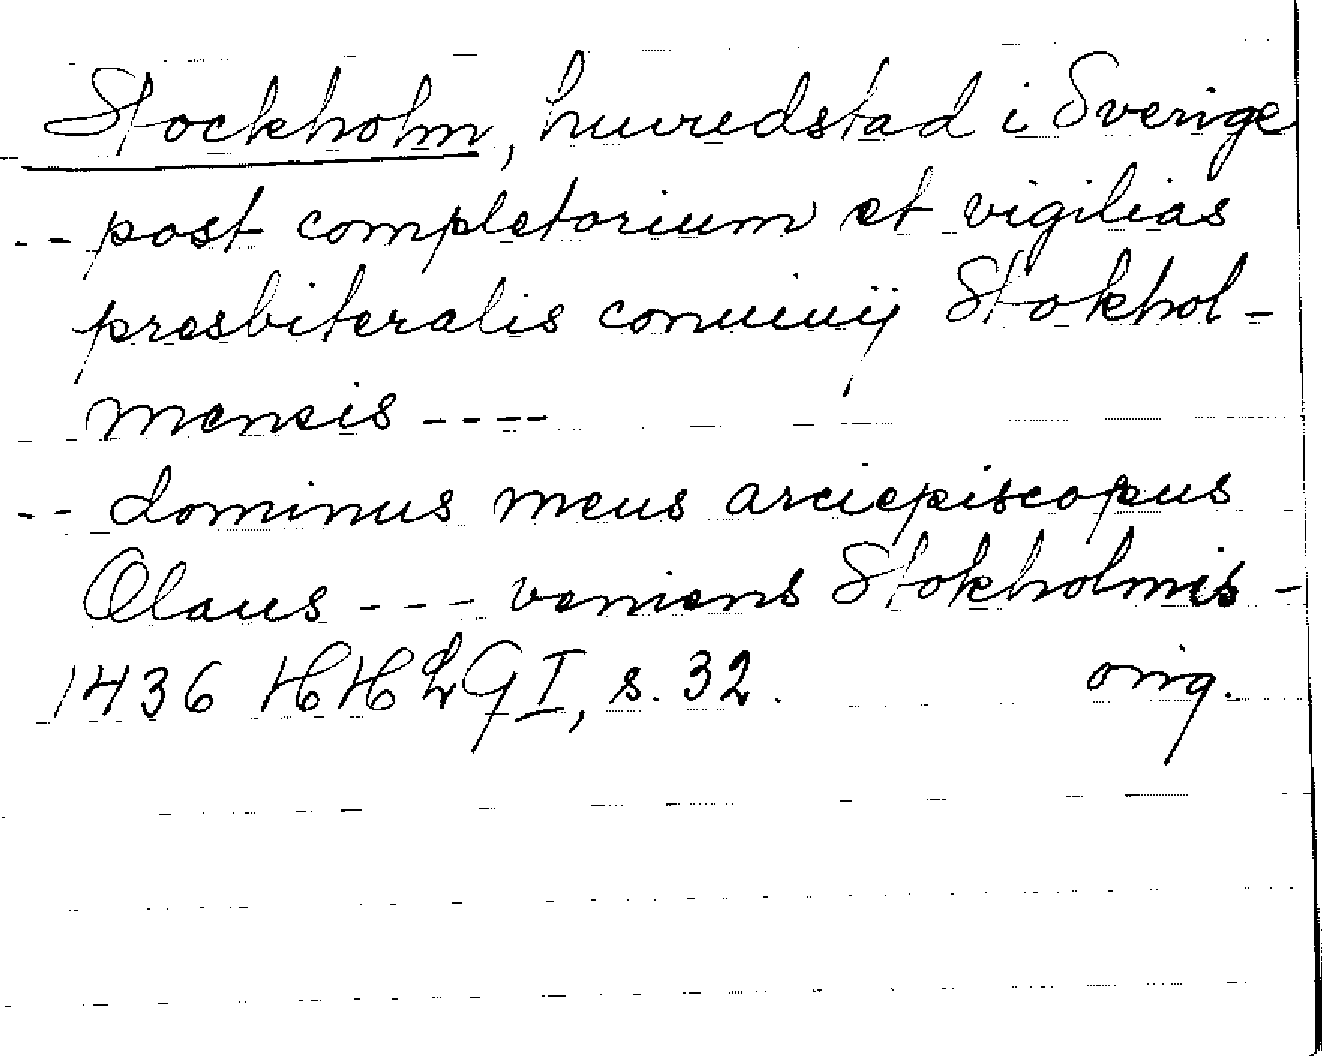 Stockholm, huvudstad i Sverige
-- post completorium et vigilias
presbiteralis conuiuij Stokhol-
mensis ----
-- dominus meus arciepiscopus
Olaus --- veniens Stokholmis -
1436 HHLGI, s. 32. orig.